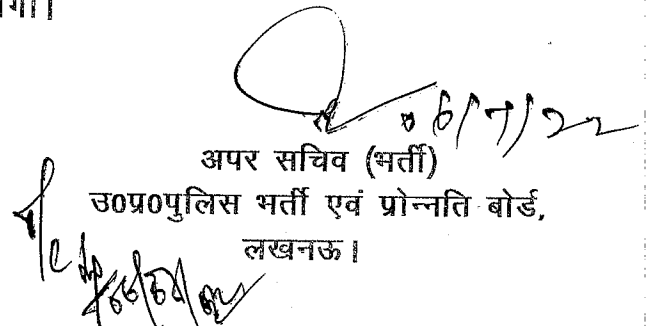 गा।
06/7/22
अपर सचिव (भर्ती)
उ०प्र०पुलिस भर्ती एवं प्रोन्नति बोर्ड,
लखनऊ।